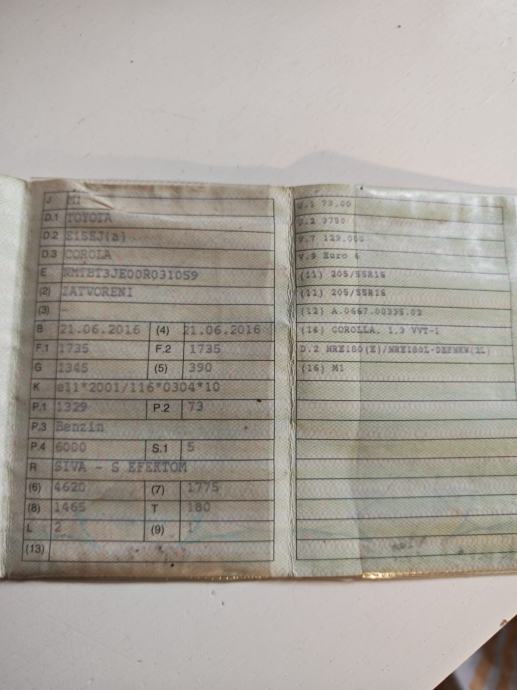 J M1
D.1 TOYOTA
D.2 E15EJ(a)
D.3 COROLA
E NMTBT3JE00R031059
(2) ZATVORENI
(3) -
B 21.06.2016 (4) 21.06.2016
F.1 1735 F.2 1735
G 1345 (5) 390
K e11*2001/116*0304*10
P.1 1329 P.2 73
P.3 Benzin
P.4 6000 S.1 5
R SIVA - S EFEKTOM
(6) 4620 (7) 1775
(8) 1465 T 180
L 2 (9) 1
(13)
U.1 73.00
U.2 3750
V.7 129.000
V.9 Euro 6
(11) 205/55R16
(11) 205/55R16
(12) A.0667.00335.02
(16) COROLLA, 1.3 VVT-i
D.2
(16) M1